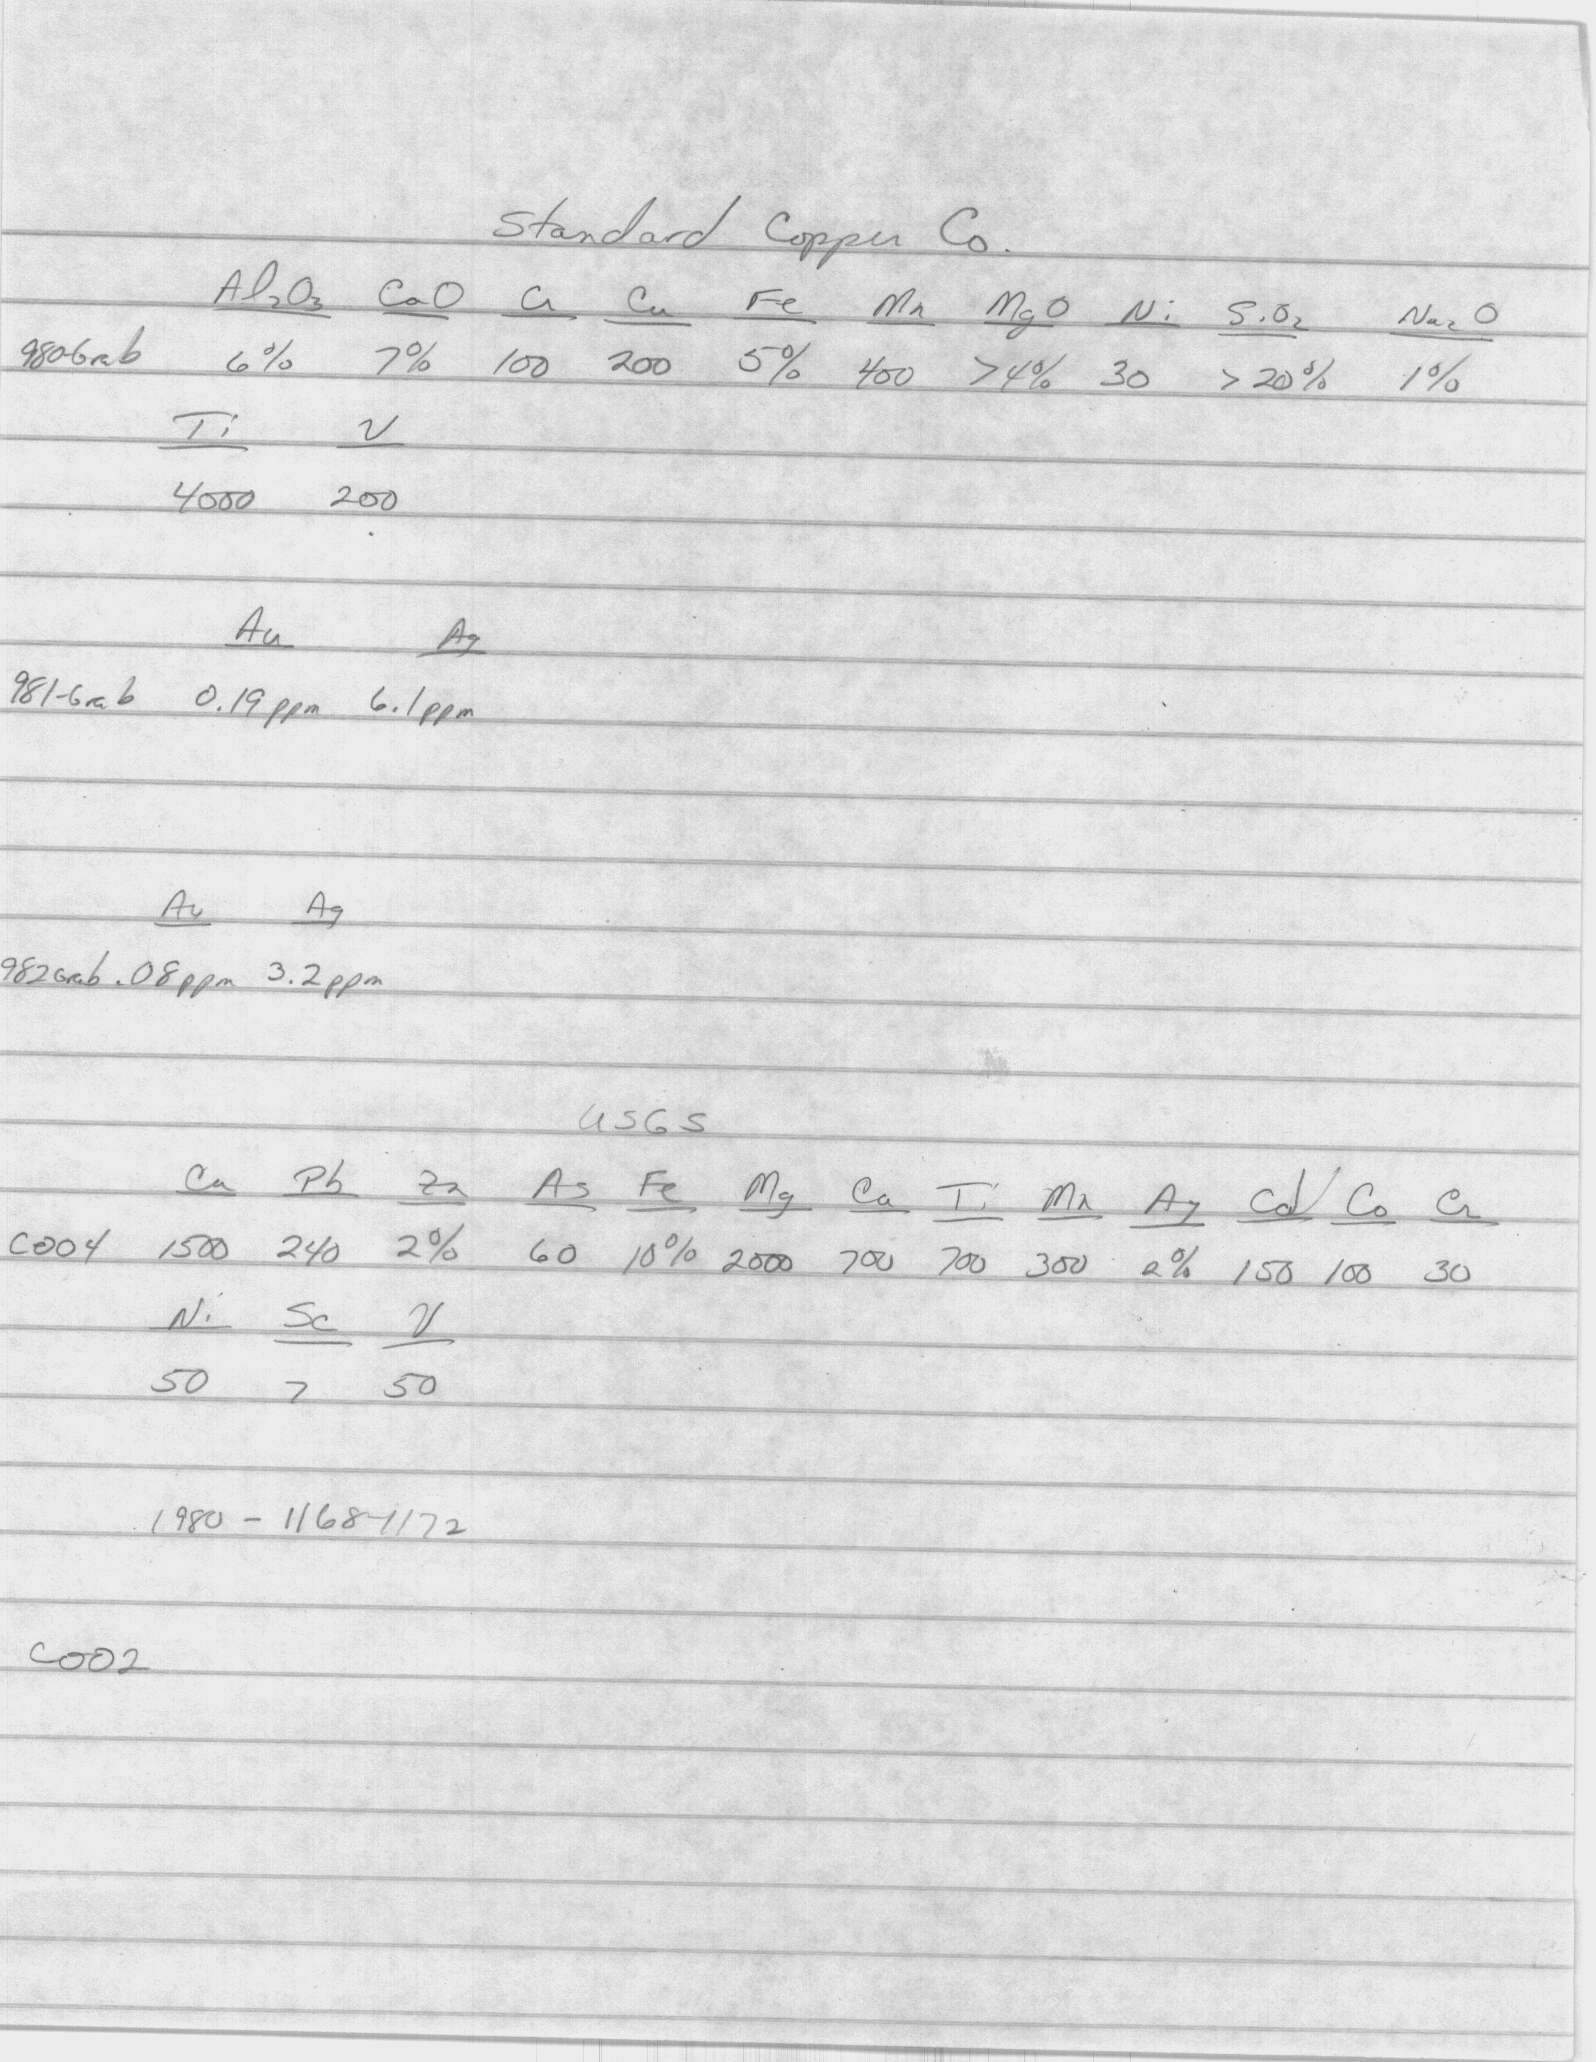 Standard Copper Co.
Al₂O₃ CaO Cr Cu Fe Mn MgO Ni SiO₂ Na₂O
980-Grab 6% 7% 100 200 5% 400 >4% 30 >20% 1%
Ti V
4000 200
Au Ag
981-Grab 0.19ppm 6.1ppm
Au Ag
982 Grab .08ppm 3.2ppm
USGS
Cu Pb Zn As Fe Mg Ca Ti Mn Ag Cd Co Cr
C004 1500 240 2% 60 10% 2000 700 700 300 2% 150 100 30
Ni Sc V
50 7 50
1980 - 1168-1172
C002